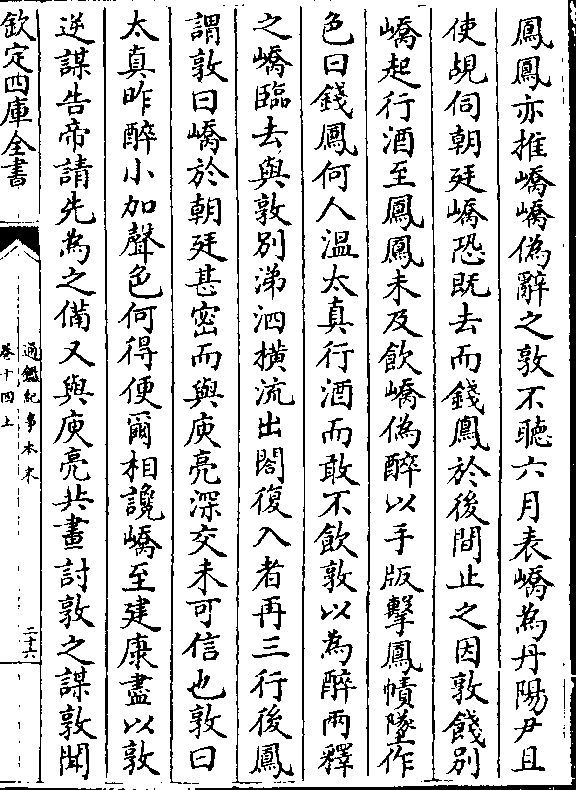 鳳鳳亦推嶠嶠偽辭之敦不聽六月表嶠為丹陽尹且
使覘伺朝廷嶠恐既去而錢鳳於後間止之因敦餞別
嶠起行酒至鳳鳳未及飲嶠偽醉以手版擊鳳幘墜作
色曰錢鳳何人溫太真行酒而敢不飲敦以為醉兩釋
之嶠臨去與敦別涕泗橫流出閤復入者再三行後鳳
謂敦曰嶠於朝廷甚密而與庾亮深交未可信也敦曰
太真昨醉小加聲色何得便爾相讒嶠至建康盡以敦
逆謀告帝請先為之備又與庾亮共畫討敦之謀敦聞
欽定四庫全書
通鑑紀事本末
卷十四上
二十六